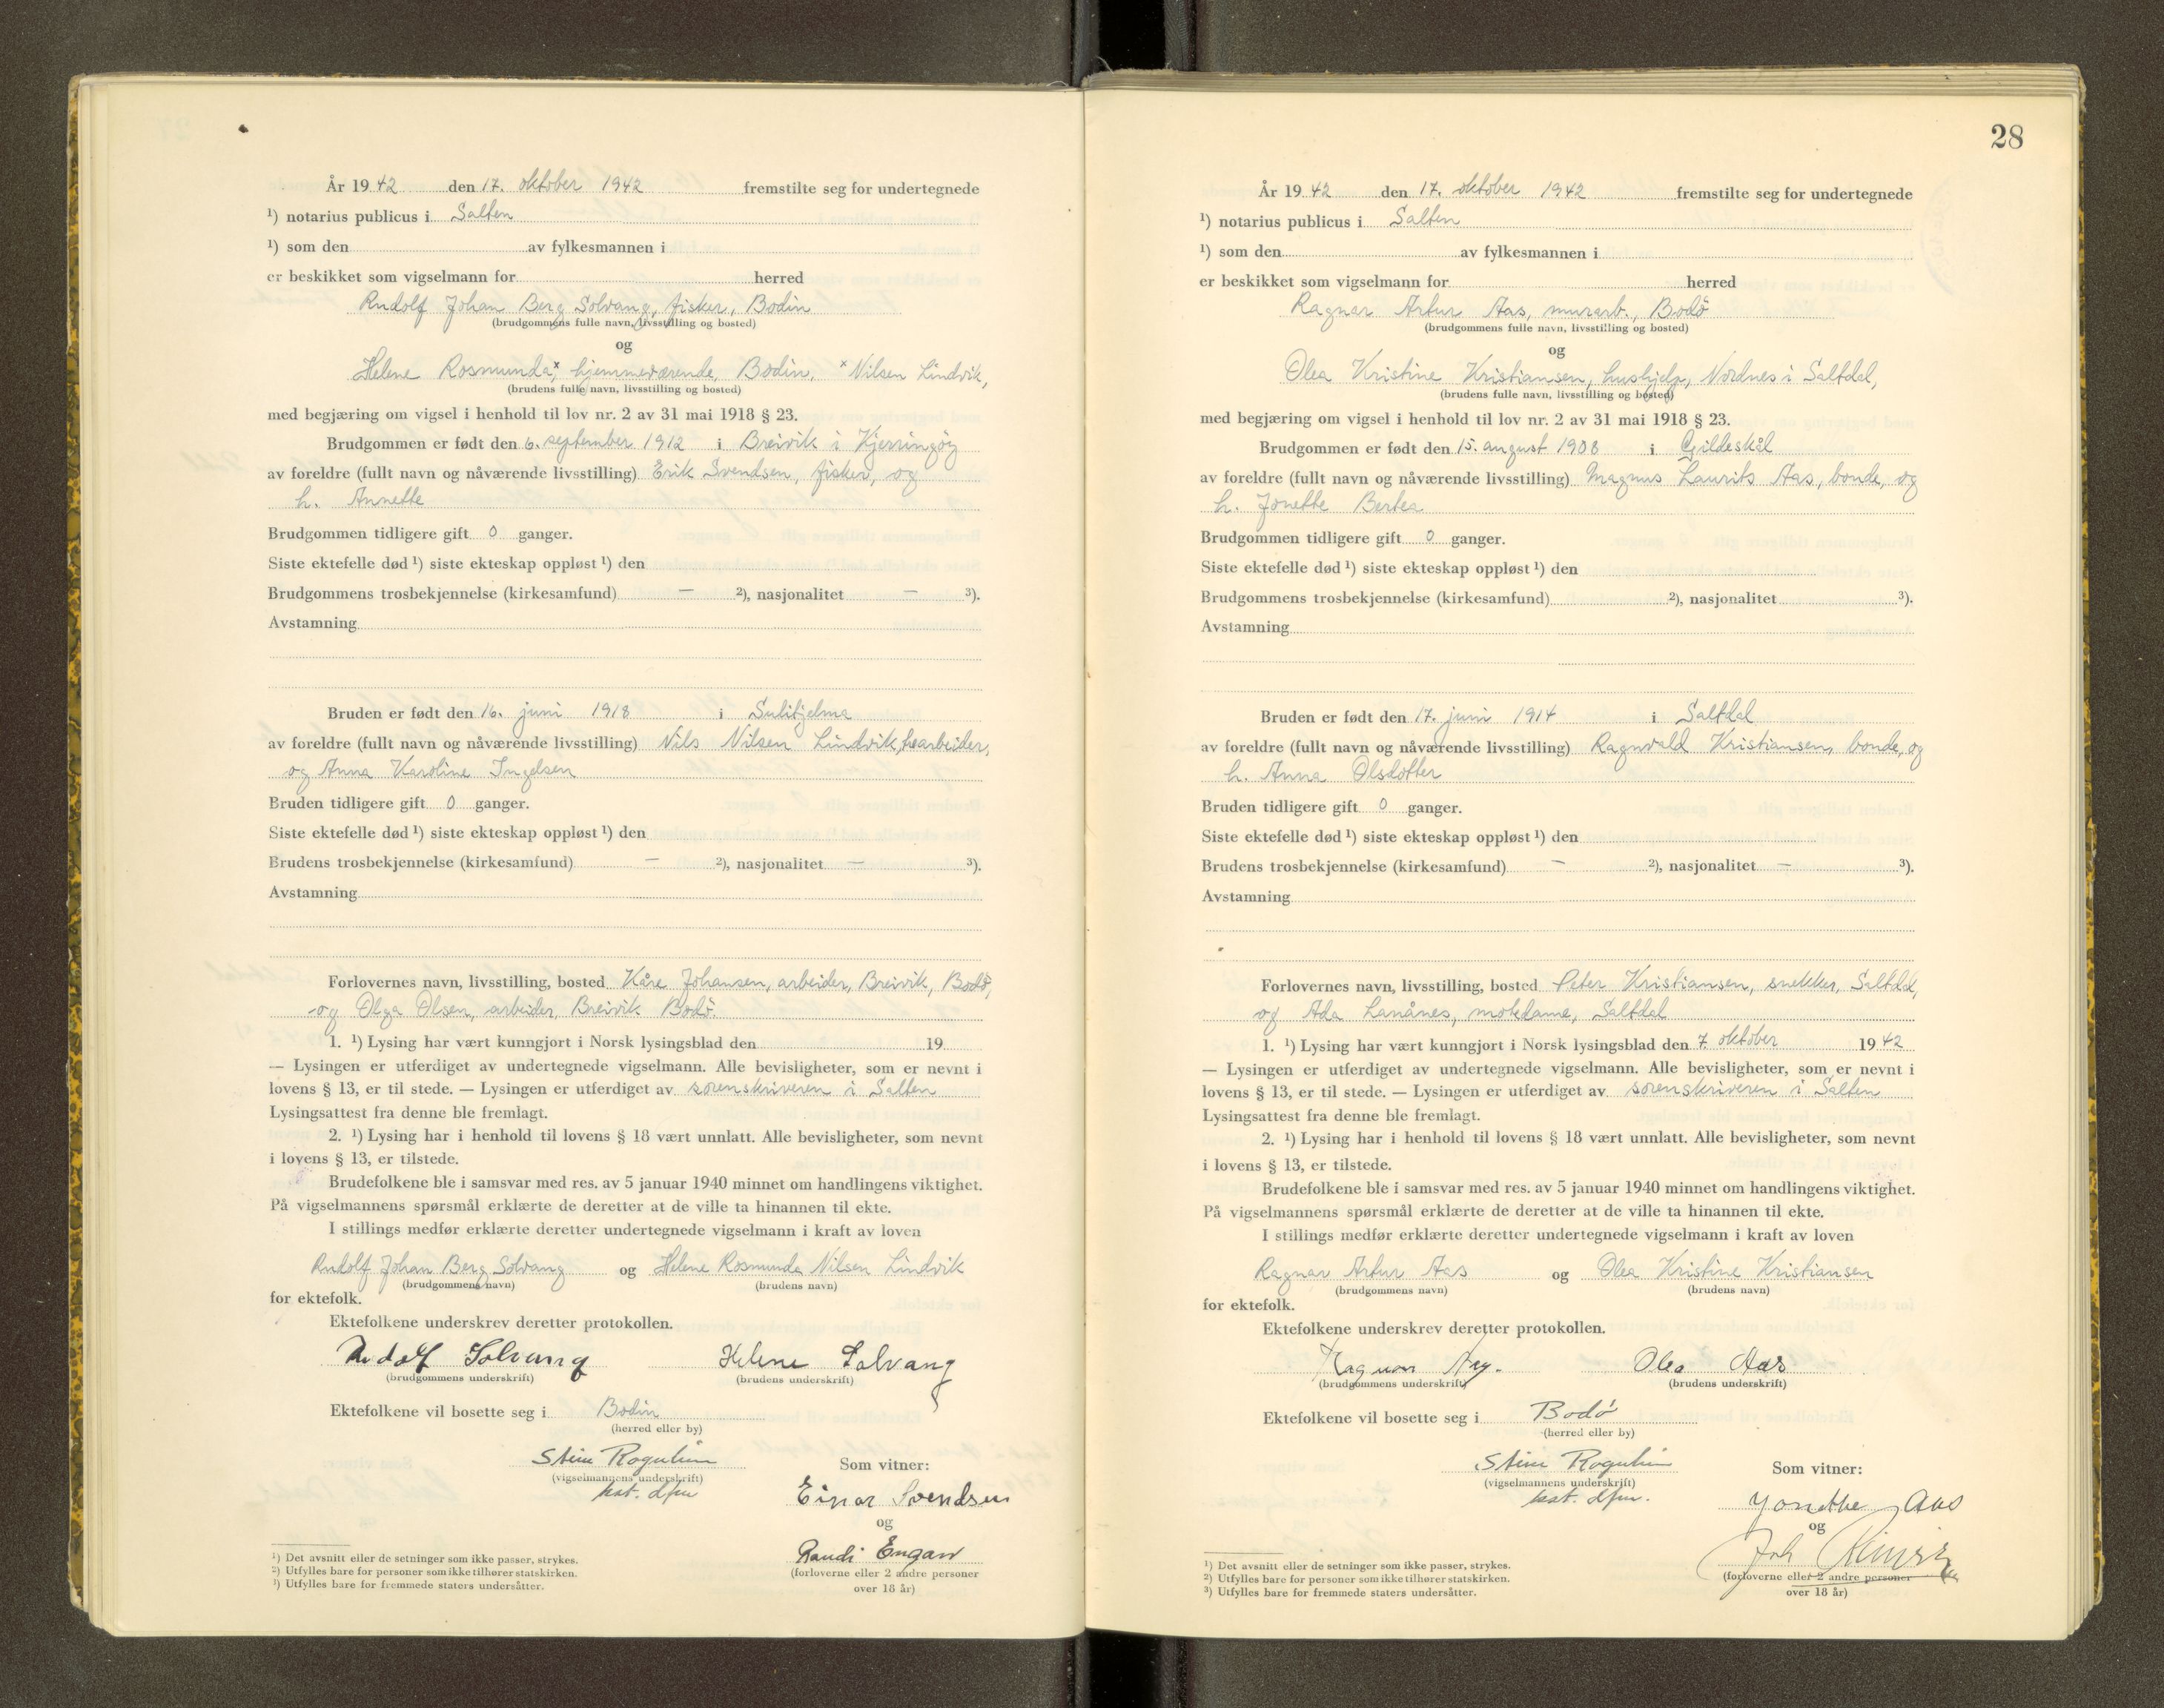 År 19 42 den 17. oktober 1942 fremstilte seg for undertegnede
¹) notarius publicus i Salten
¹) som den av fylkesmannen i
er beskikket som vigselmann for herred
Rudolf Johan Berg Solvang, fisker, Bodin
(brudgommens fulle navn, livsstilling og bosted)
og
Helene Rosmunda,ˣ hjemmeværende, Bodin, ˣ Nilsen Lindvik,
(brudens fulle navn, livsstilling og bosted)
med begjæring om vigsel i henhold til lov nr. 2 av 31 mai 1918 § 23.
Brudgommen er født den 6. september 1912 i Breivik i Kjerringøy
av foreldre (fullt navn og nåværende livsstilling) Erik Svendsen, fisker, og
h. Annette
Brudgommen tidligere gift 0 ganger.
Siste ektefelle død ¹) siste ekteskap oppløst ¹) den
Brudgommens trosbekjennelse (kirkesamfund) — ²), nasjonalitet — ³).
Avstamning
Bruden er født den 16. juni 1918 i Sulitjelma
av foreldre (fullt navn og nåværende livsstilling) Nils Nilsen Lindvik,
og Anna Karoline Ingelsen
Bruden tidligere gift 0 ganger.
Siste ektefelle død ¹) siste ekteskap oppløst ¹) den
Brudens trosbekjennelse (kirkesamfund) — ²), nasjonalitet — ³).
Avstamning
Forlovernes navn, livsstilling, bosted Kåre Johansen, arbeider, Breivik, Bodø,
og Olga Olsen, arbeider, Breivik Bodø.
1. ¹) Lysing har vært kunngjort i Norsk lysingsblad den 19
— Lysingen er utferdiget av undertegnede vigselmann. Alle bevisligheter, som er nevnt i
lovens § 13, er til stede. — Lysingen er utferdiget av sorenskriveren i Salten
Lysingsattest fra denne ble fremlagt.
2. ¹) Lysing har i henhold til lovens § 18 vært unnlatt. Alle bevisligheter, som nevnt
i lovens § 13, er tilstede.
Brudefolkene ble i samsvar med res. av 5 januar 1940 minnet om handlingens viktighet.
På vigselmannens spørsmål erklærte de deretter at de ville ta hinannen til ekte.
I stillings medfør erklærte deretter undertegnede vigselmann i kraft av loven
Rudolf Johan Berg Solvang og Helene Rosmunda Nilsen Lindvik
(brudgommens navn) (brudens navn)
for ektefolk.
Ektefolkene underskrev deretter protokollen.
Rudolf Solvang Helene Solvang
(brudgommens underskrift) (brudens underskrift)
Ektefolkene vil bosette seg i Bodin
(herred eller by)
Som vitner:
(vigselmannens underskrift)
Einar Svendsen
og
Randi Engan
(forloverne eller 2 andre personer
over 18 år)
¹) Det avsnitt eller de setninger som ikke passer, strykes.
²) Utfylles bare for personer som ikke tilhører statskirken.
³) Utfylles bare for fremmede staters undersåtter.
28
År 19 42 den 17. oktober 1942 fremstilte seg for undertegnede
¹) notarius publicus i Salten
¹) som den av fylkesmannen i
er beskikket som vigselmann for herred
Ragnar Artur Aas, murarb., Bodö
(brudgommens fulle navn, livsstilling og bosted)
og
Olea Kristine Kristiansen, hushjelp, Nordnes i Saltdal,
(brudens fulle navn, livsstilling og bosted)
med begjæring om vigsel i henhold til lov nr. 2 av 31 mai 1918 § 23.
Brudgommen er født den 15. august 1908 i Gildeskål
av foreldre (fullt navn og nåværende livsstilling) Magnus Laurits Aas, bonde, og
h. Jonette Bertea
Brudgommen tidligere gift 0 ganger.
Siste ektefelle død ¹) siste ekteskap oppløst ¹) den
Brudgommens trosbekjennelse (kirkesamfund) ²), nasjonalitet ³).
Avstamning
Bruden er født den 17. juni 1914 i Saltdal
av foreldre (fullt navn og nåværende livsstilling) Ragnvald Kristiansen, bonde, og
h. Anna Olsdotter
Bruden tidligere gift 0 ganger.
Siste ektefelle død ¹) siste ekteskap oppløst ¹) den
Brudens trosbekjennelse (kirkesamfund) — ²), nasjonalitet — ³).
Avstamning
Forlovernes navn, livsstilling, bosted Peter Kristiansen, snekker, Saltdal,
og Ada Lanånes, motedame, Saltdal
1. ¹) Lysing har vært kunngjort i Norsk lysingsblad den 7. oktober 19 42
— Lysingen er utferdiget av undertegnede vigselmann. Alle bevisligheter, som er nevnt i
lovens § 13, er til stede. — Lysingen er utferdiget av sorenskriveren i Salten
Lysingsattest fra denne ble fremlagt.
2. ¹) Lysing har i henhold til lovens § 18 vært unnlatt. Alle bevisligheter, som nevnt
i lovens § 13, er tilstede.
Brudefolkene ble i samsvar med res. av 5 januar 1940 minnet om handlingens viktighet.
På vigselmannens spørsmål erklærte de deretter at de ville ta hinannen til ekte.
I stillings medfør erklærte deretter undertegnede vigselmann i kraft av loven
Ragnar Artur Aas og Olea Kristine Kristiansen
(brudgommens navn) (brudens navn)
for ektefolk.
Ektefolkene underskrev deretter protokollen.
Ragnar Olea Aas
(brudgommens underskrift) (brudens underskrift)
Ektefolkene vil bosette seg i Bodö
(herred eller by)
Som vitner:
(vigselmannens underskrift)
Jonette Aas
og
Joh
(forloverne eller 2 andre personer
over 18 år)
¹) Det avsnitt eller de setninger som ikke passer, strykes.
²) Utfylles bare for personer som ikke tilhører statskirken.
³) Utfylles bare for fremmede staters undersåtter.